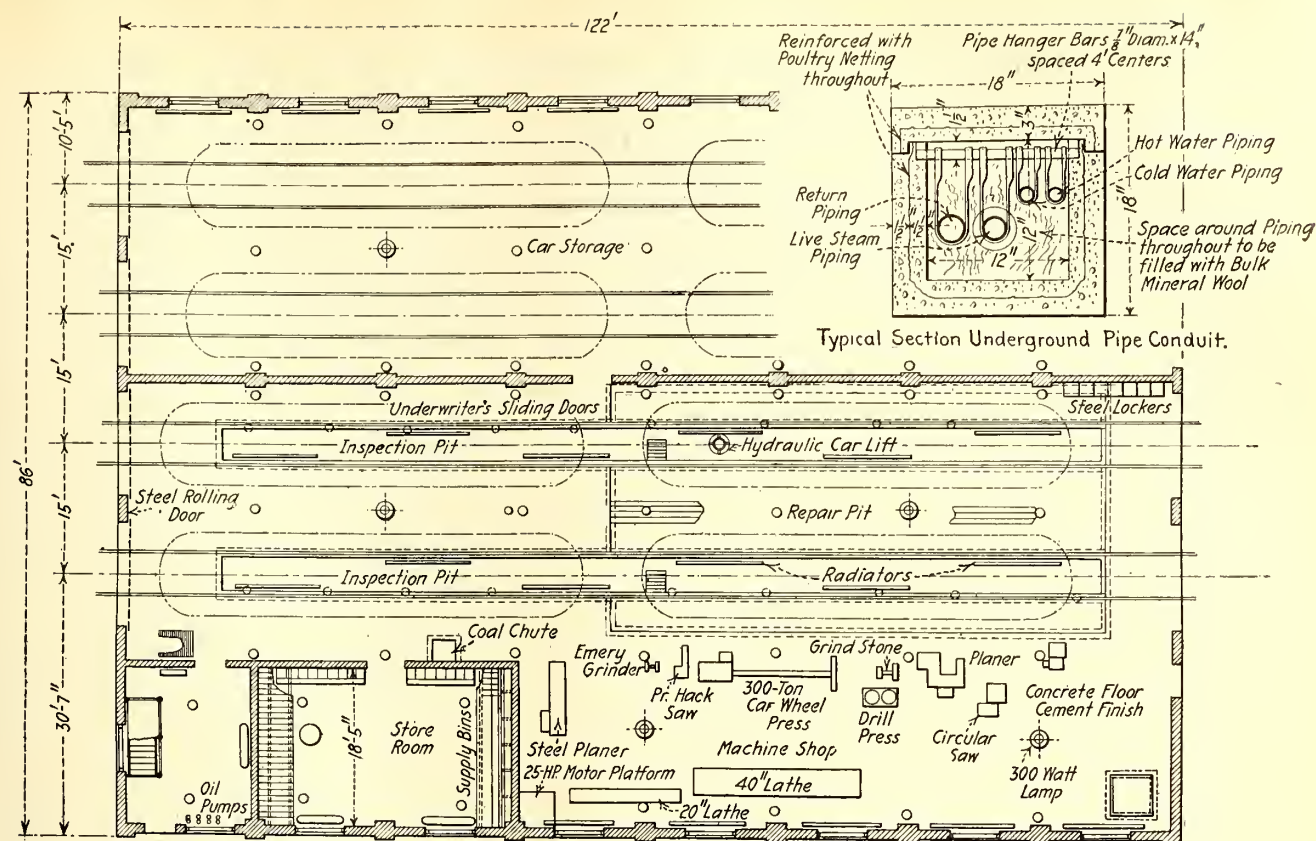 122'
Reinforced with
Poultry Netting
throughout
Pipe Hanger Bars 7/8" Diam. x 14",
spaced 4' Centers
18"
1 1/2"
3"
Hot Water Piping
Cold Water Piping
18"
Return
Piping
Live Steam
Piping
1 1/2"
1 1/2"
12"
12"
Space around Piping
throughout to be
filled with Bulk
Mineral Wool
Typical Section Underground Pipe Conduit.
86'
10'-5"
15'
15'
15'
30'-7"
Car Storage
Underwriter's Sliding Doors
Steel Lockers
Inspection Pit
Hydraulic Car Lift
Steel Rolling
Door
Repair Pit
Inspection Pit
Radiators
Coal Chute
Emery
Grinder
Pr. Hack
Saw
300-Ton
Car Wheel
Press
Grind Stone
Drill
Press
Planer
Circular
Saw
Concrete Floor
Cement Finish
300 Watt
Lamp
Store
Room
18'-5"
Supply Bins
Oil
Pumps
Steel Planer
25-HP. Motor Platform
Machine Shop
40" Lathe
20" Lathe